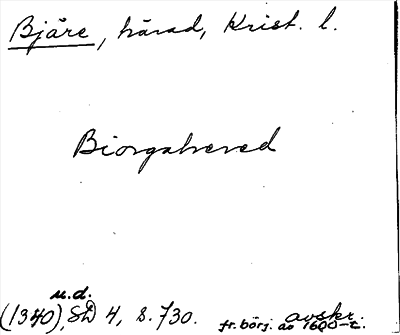 Bjäre, härad, Krist. l.
Biorgahered
u.d.
(1340), SD 4, s. 730. avskr.
fr. börj. av 1600-t.